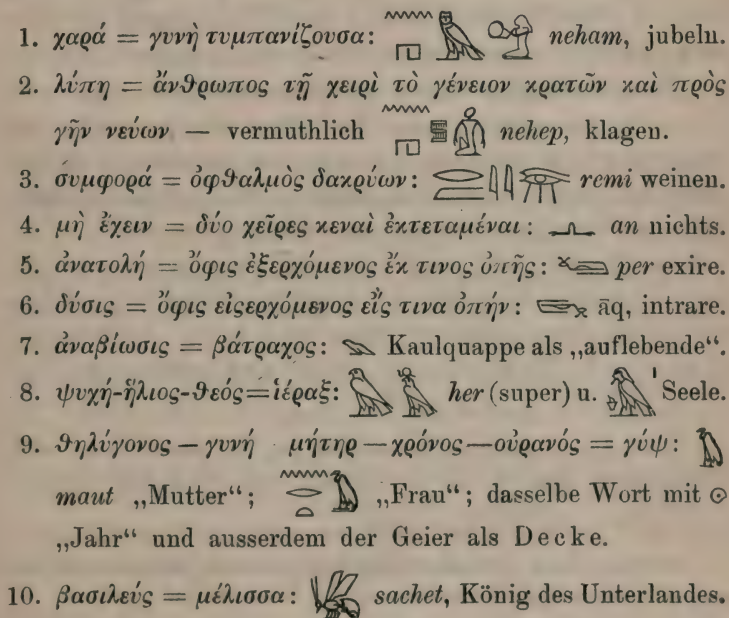 1. χαρά = γυνὴ τυμπανίζουσα: 𓈖𓉔𓅓 neham, jubeln.
2. λύπη = ἄνϑρωπος τῇ χειρὶ τὸ γένειον κρατῶν καὶ πρὸς
γῆν νεύων — vermuthlich nehep, klagen.
3. συμφορά = ὀφϑαλμὸς δακρύων: remi weinen.
4. μὴ ἔχειν = δύο χεῖρες κεναὶ ἐκτεταμέναι: 𓂜 an nichts.
5. ἀνατολή = ὄφις ἐξερχόμενος ἔκ τινος ὀπῆς: per exire.
6. δύσις = ὄφις εἰςερχόμενος εἴς τινα ὀπήν: āq, intrare.
7. ἀναβίωσις = βάτραχος: 𓆐 Kaulquappe als „auflebende“.
8. ψυχή-ἥλιος-ϑεός=ἱέραξ: her (super) u. Seele.
9. ϑηλύγονος — γυνή μήτηρ — χρόνος — οὐρανός = γύψ: 𓅐
maut „Mutter“; „Frau“; dasselbe Wort mit ☉
„Jahr“ und ausserdem der Geier als Decke.
10. βασιλεύς = μέλισσα: 𓆤 sachet, König des Unterlandes.